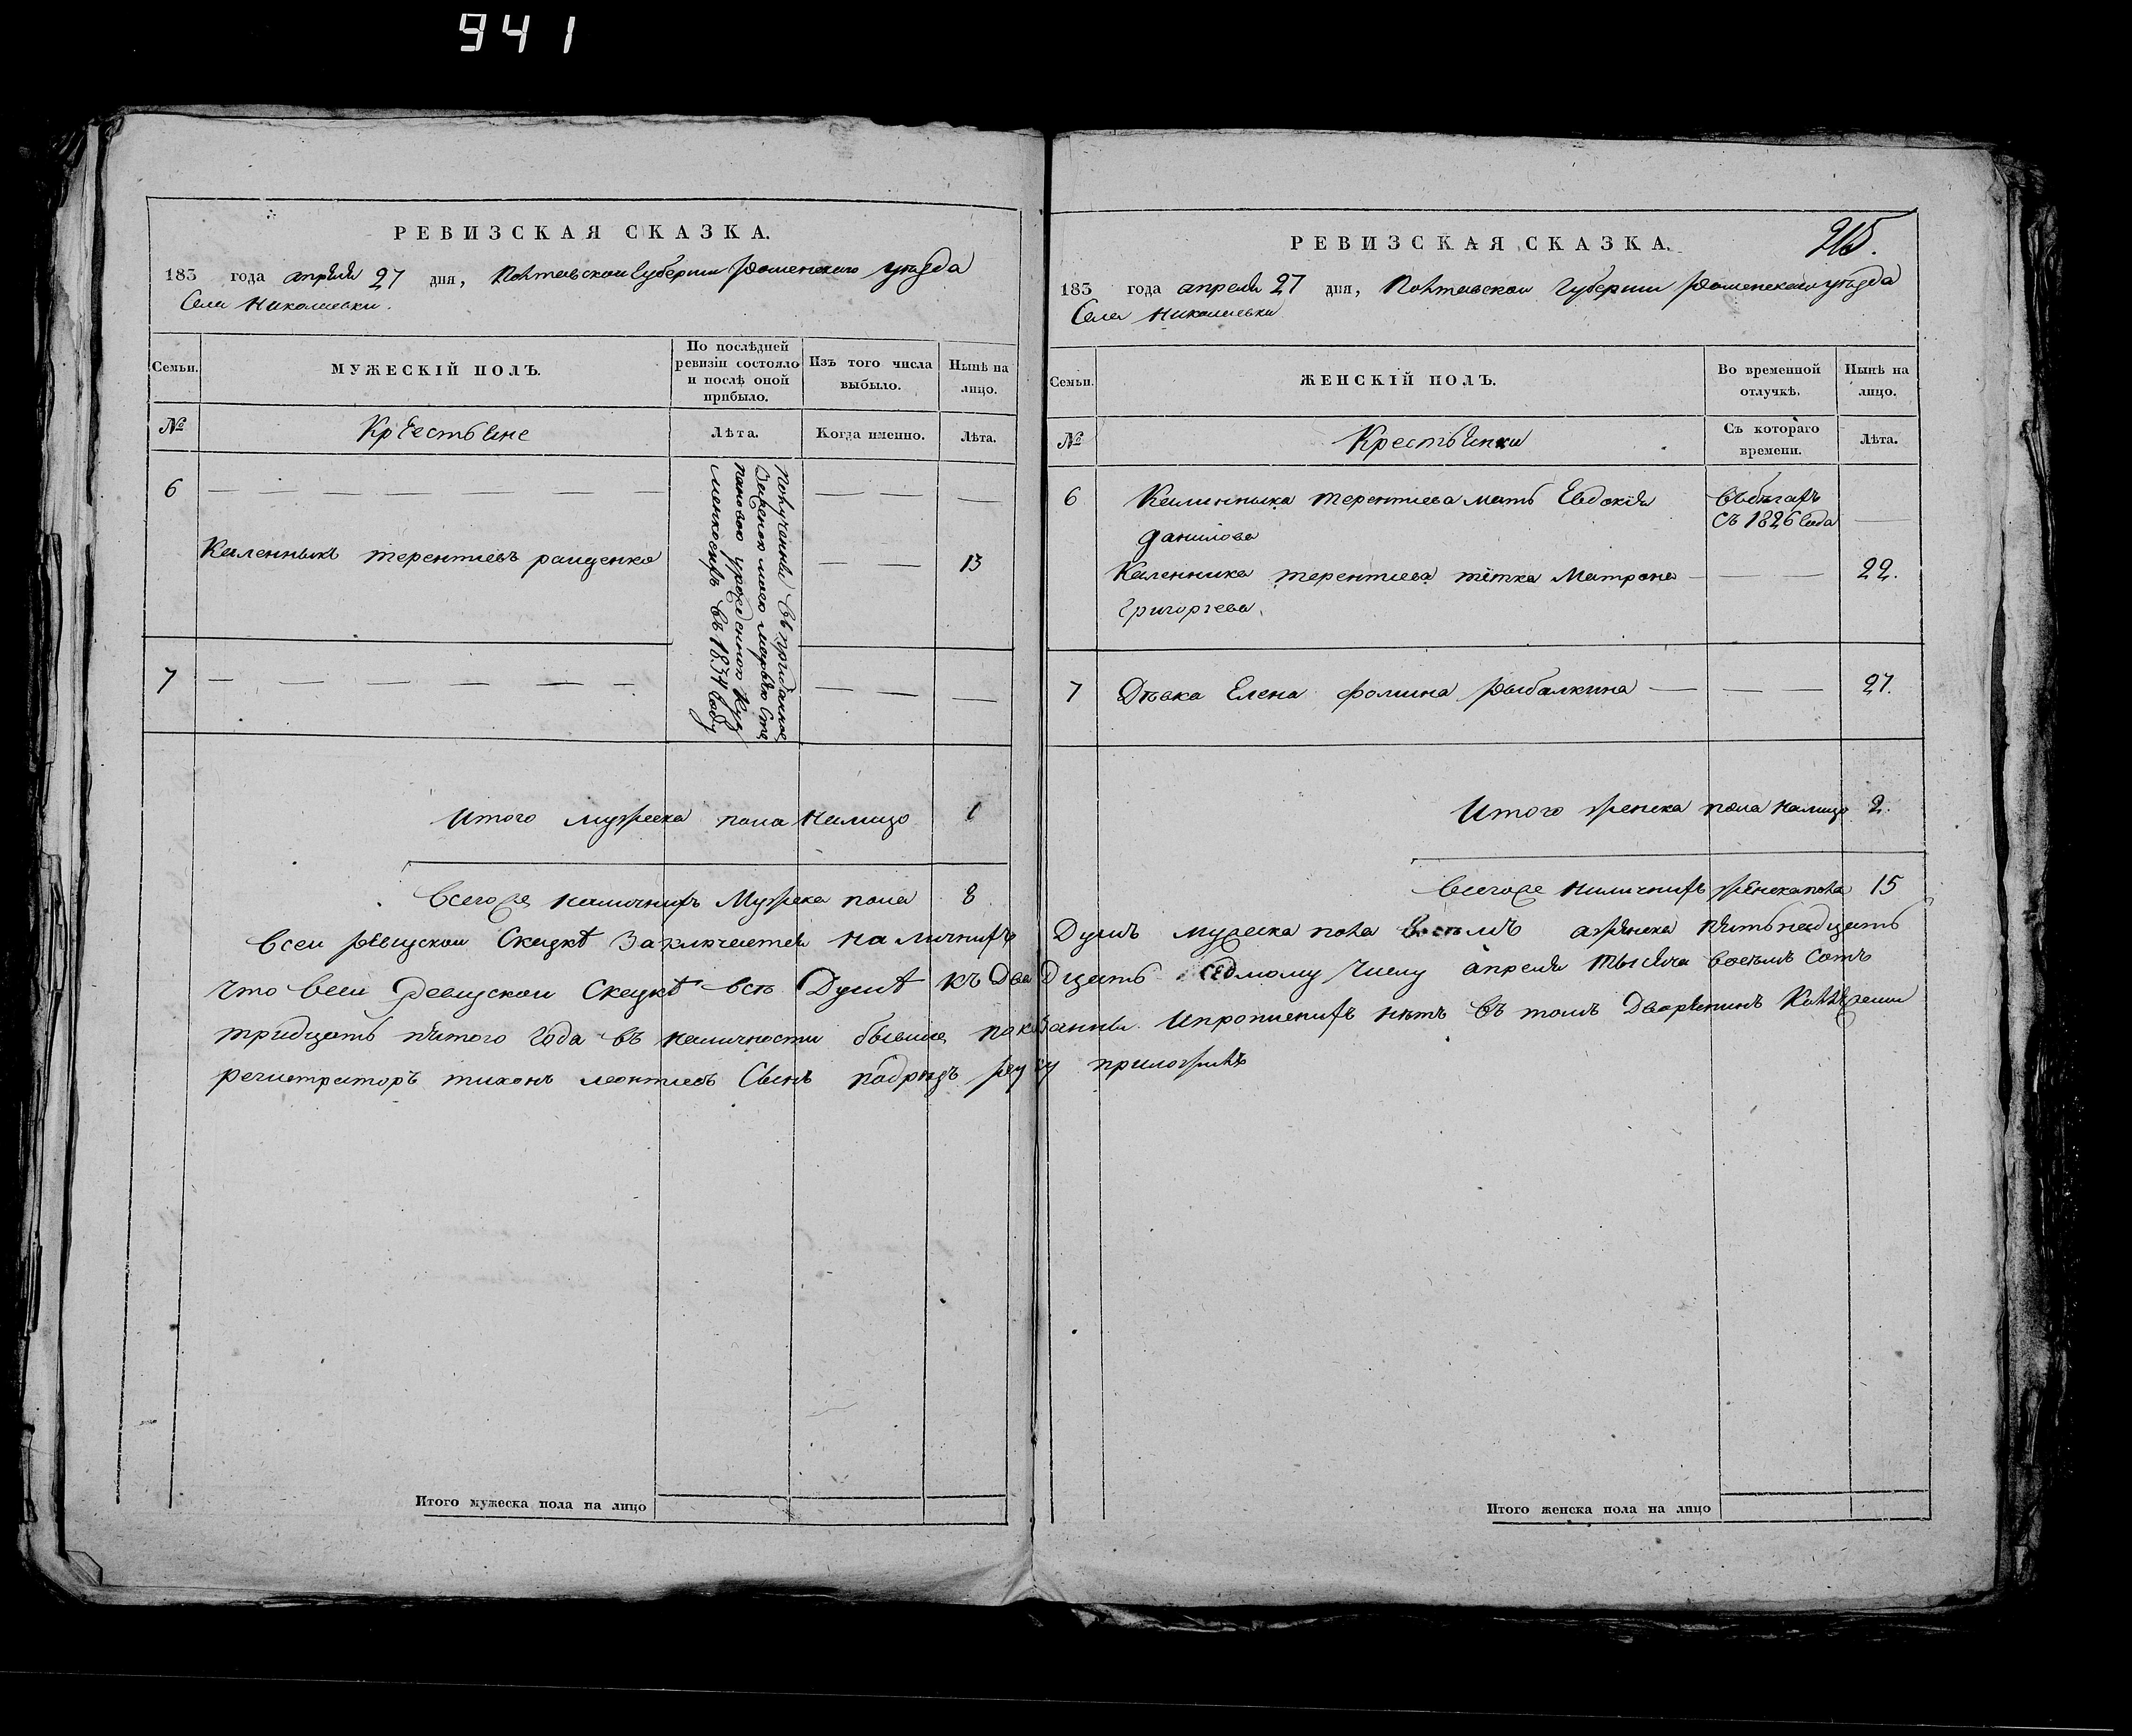 941
РЕВИЗСКАЯ СКАЗКА.
183 года апреля 27 дня, Полтавской Губернии Роменского уезда
Села Николаевки.
Семьи.
МУЖЕСКІЙ ПОЛЪ.
По послѣдней
ревизіи состояло
и послѣ оной
прибыло.
Изъ того числа
выбыло.
Нынѣ на
лицо.
№
Крестьяне
Лѣта.
Когда именно.
Лѣта.
6
Каленныкъ терентиевъ ращенко
13
Полученны въ приданное
Зажоною моею марьею Сте
пановою урожденною Куз
менковыхъ въ 1834 году
7
Итого мужеска пола Налицо 1
Всегоже наличныхъ Мужеска пола 8
РЕВИЗСКАЯ СКАЗКА.
215.
183 года апреля 27 дня, Полтавской Губернии Роменского уезда
Села Николаевки
Семьи.
ЖЕНСКІЙ ПОЛЪ.
Во временной
отлучкѣ.
Нынѣ на
лицо.
№
Крестьянки
Съ котораго
времени.
Лѣта.
6
Калинныка терентиева мать Евдокия
данилова
Въбегахъ
съ 1826 года
Каленника терентиева тётка Матрона
Григорьева.
22.
7
Дѣвка Елена фомина Рыбалкина
27.
Итого женска пола налицо 2.
Всегоже наличныхъ женска пола 15
Всеи ревизскои Сказкѣ Заключается наличныхъ Душъ мужеска пола Восемъ аженска пятьнадцать
что всеи Ревизскои Сказкѣ всѣ Душѣ къ Двадцать седмому числу апреля тысяча восемъ Сотъ
тридцать пятого года въ наличности бывшие показанны Ипрописныхъ нетъ въ томъ Дворянинъ Коллежский
регистраторъ тихонъ леонтиевъ Сынъ руку приложилъ
Итого мужеска пола на лицо
Итого женска пола на лицо